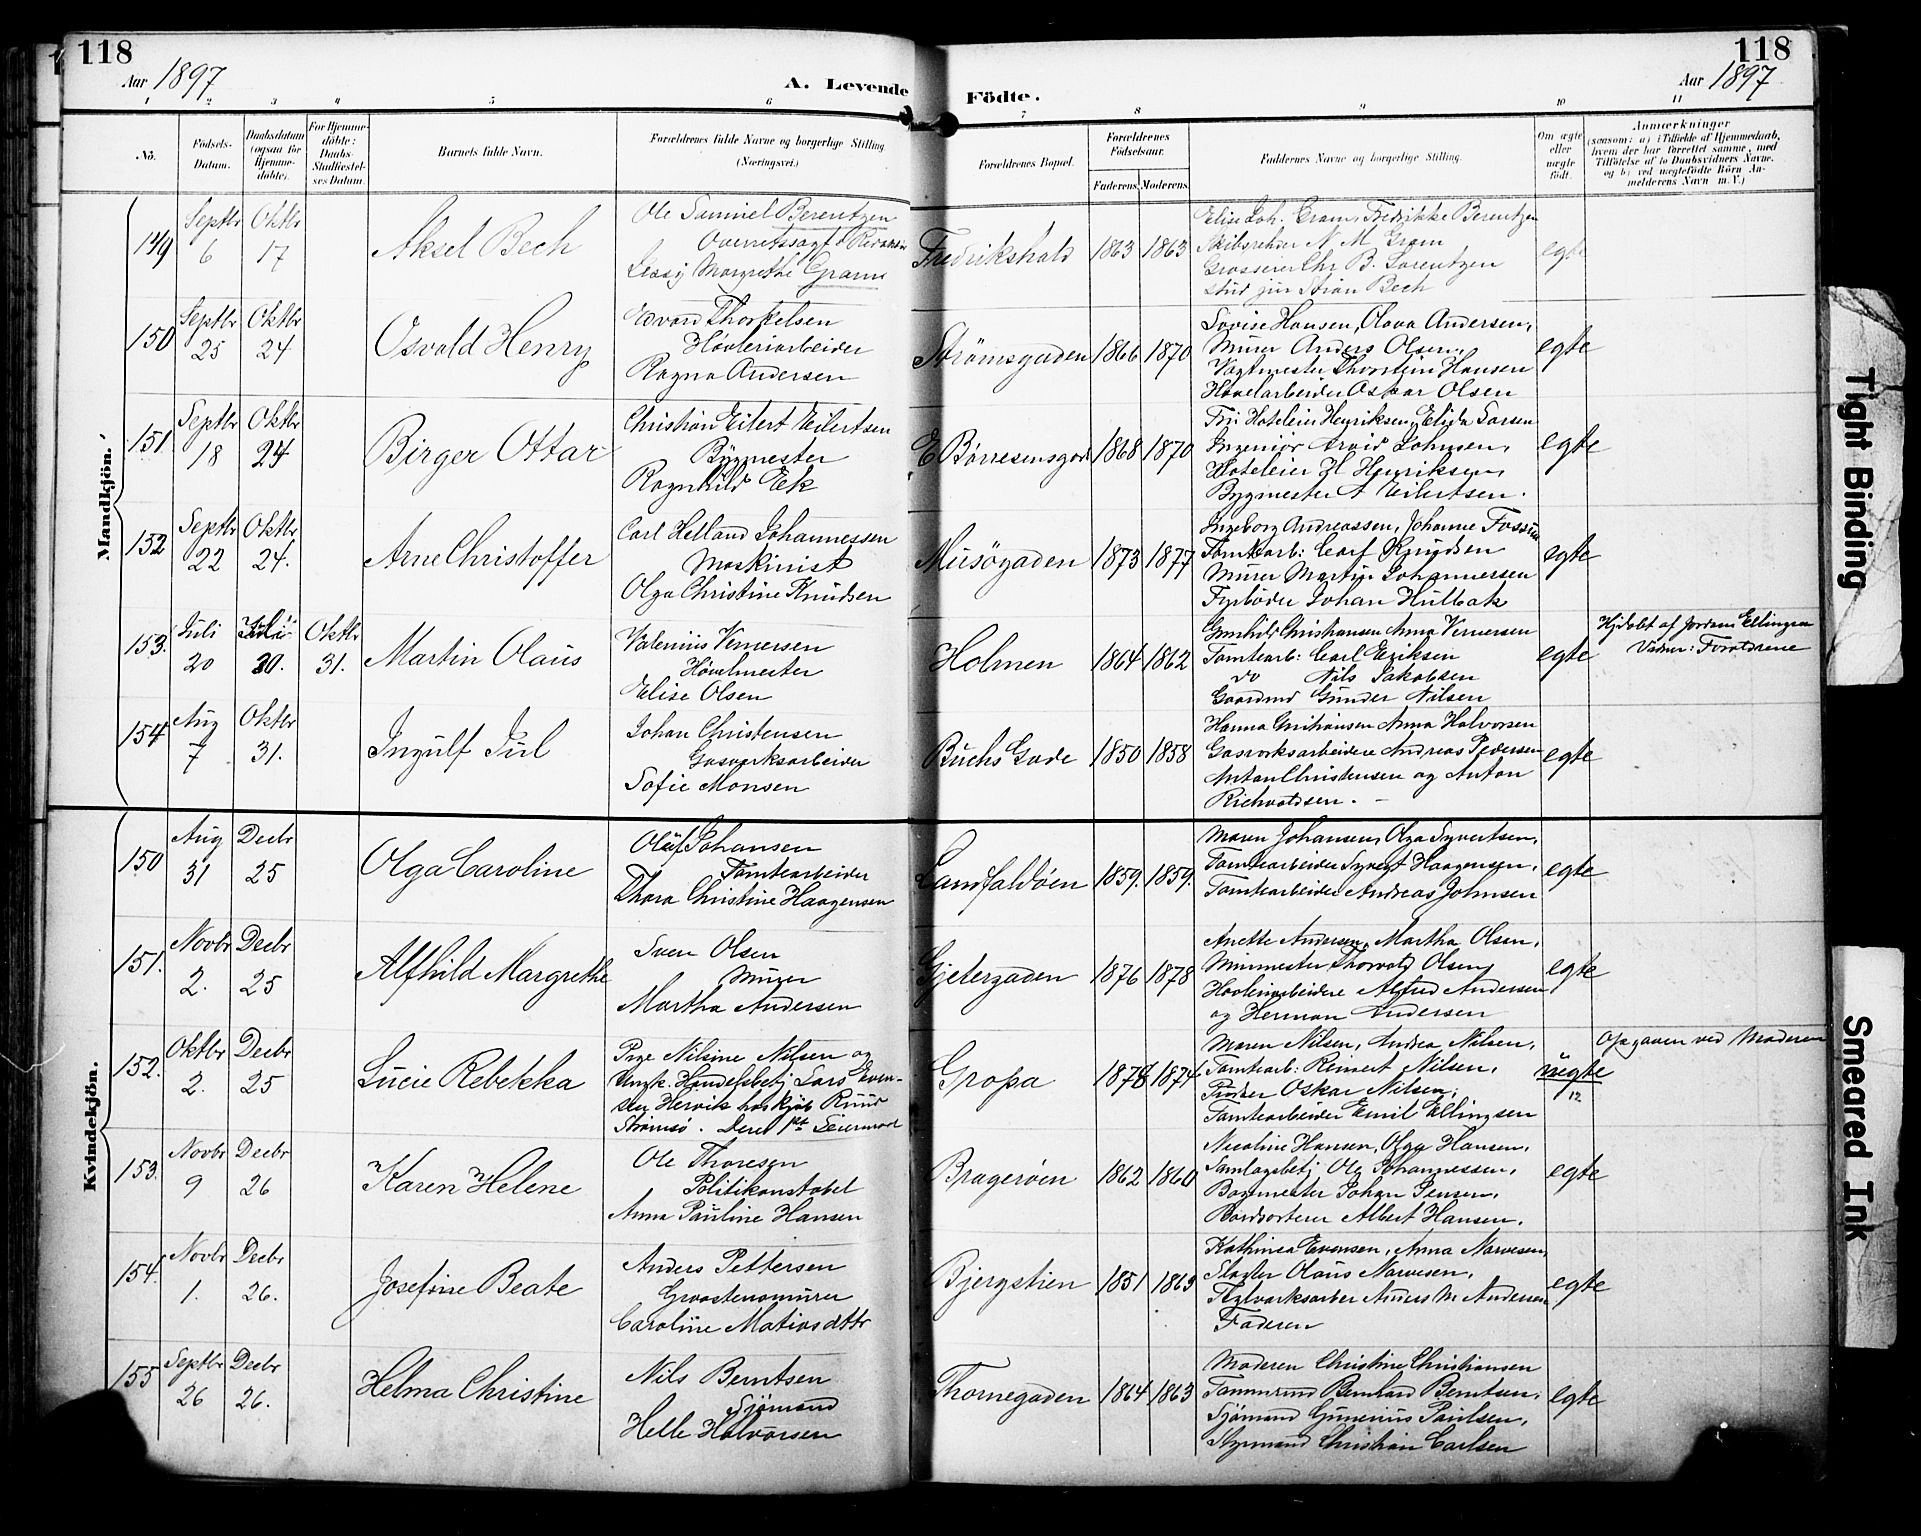 118
118
Aar 1897
A. Levende
Födte.
Aar 1897
1 2 3 4 5 6 7 8 9 10 11
Nô.
Födsels-
Datum.
Daabsdatum
(ogsaa for
Hjemme-
döbte).
For Hjemme-
döbte:
Daabs-
Stadfæstel-
ses Datum.
Barnets fulde Navn.
Forældrenes fulde Navne og borgerlige Stilling
(Næringsvei.)
Forældrenes Bopæl.
Forældrenes
Födselsaar.
Faderens. Moderens.
Faddernes Navne og borgerlige Stilling.
Om ægte
eller
uægte
födt.
Anmærkninger
(saasom: a) i Tilfælde af Hjemmedaab,
hvem der har forrettet samme, med
Tilföielse af to Daabsvidners Navne.
og b) ved uægtefödte Börn An-
melderens Navn m. V.)
Mandkjön.
149
Septbr
6
Oktbr
17
Aksel Bech
Ole Samuel Berentzen
Overretssagf.
Margrethe Gram
Fredrikshald
1863 1863
Elise Joh. Gram, Fredrikke Berentzen
Skibsreder N. M. Gram
Grosserer Chr. B. Lorentzen
stud jur Bech
egte
150
Septbr
25
Oktbr
24
Osvald Henry
Edvard Thorkelsen
Høvleriarbeider
Ragna Andersen
Strömsgaden
1866 1870
Lovise Hansen, Olava Andersen,
Murer Anders Olsen,
Vagtmester Thorstein Hansen
Høvelarbeider Oskar Olsen
egte
151
Septbr
18
Oktbr
24
Birger Ottar
Christian Eilert Eilertsen
Bygmester
Ragnhild Ek
E Børresensgad
1868 1870
Hoteleier Henriksen, Elida Larsen
Ingeniör Arvid Johnsen,
Hoteleier H Henriksen,
Bygmester A Eilertsen.
egte
152
Septbr
22
Oktbr
24.
Arne Christoffer
Carl Helland Johannessen
Maskinist
Olga Christine Knudsen
Musögaden
1873 1877
Ingeborg Andreassen, Johanne Fossum
Tomtearb: Carl Knudsen
Murer Martin Johannersen
Fyrböder Johan Hulbak
egte
153.
Juli
20
Juli
20.
Oktbr
31.
Martin Olaus
Valerius Vernersen
Høvelmester
Elise Olsen
Holmen
1864 1862
Gunhild Christiansen Anna Vernersen
Tomtearb: Carl Eriksen
do Nils Jakobsen
Gaardmd Gunder Nilsen
egte
Hjdøbt af Jordem Ellingsen
Vidner: Forældrene
154
Aug
7
Oktbr
31.
Ingulf Jul
Johan Christensen
Gasverksarbeider
Sofie Monsen
Buchs Gade
1850 1858
Hanna Christiansen Anna Halvorsen
Gasverksarbeidere Andreas Pedersen
Anton Christensen og Anton
Richvoldsen.
egte
Kvindekjön.
150
Aug
31
Decbr
25
Olga Caroline
Oluf Johansen
Tomtearbeider
Thora Christine Haagensen
Landfaldöen
1859. 1859.
Maren Johansen, Olga Syvertsen,
Tomtearbeider Syvert Haagensen,
Tomtearbeider Andreas Johnsen
egte
151.
Novbr
2.
Decbr
25
Alfhild Margrethe
Sven Olsen
Murer
Martha Andersen
Gjetergaden
1876 1878
Anette Andersen, Martha Olsen,
Minmester Thorvald Olsen,
Høvleriarbeidere Alfred Andersen
og Herman Andersen
egte
152.
Oktbr
2.
Decbr
25
Lucie Rebekka
Pige Nilsine Nilsen og
Ungk. Handelsbetj Lars Even-
sen Hervik hos kjöb Ruud
Strömsö. Deres 1ste Leiermaal
Gropa
1878 1874
Maren Nilsen, Andrea Nilsen,
Tomtearb: Reinert Nilsen,
Oskar Nilsen,
Tomtearbeider Emil Ellingsen
uegte
12
Opgaven ved Moderen
153.
Novbr
9
Decbr
26
Karen Helene
Ole Thoresen
Politikonstabel
Anna Pauline Hansen
Bragerøen
1862 1860
Nicoline Hansen, Olga Hansen,
Samlagsbetj Ole Johannessen,
Bommester Johan Jensen,
Bordsorterer Albert Hansen.
egte
154.
Novbr
1.
Decbr
26.
Josefine Beate
Anders Pettersen
Graastensmurer
Caroline Matiasdttr
Bjergstien
1851 1863
Kathinca Evensen, Anna Narvesen,
Slagter Olaus Narvesen,
Teglverksarber Anders M. Andersen
Faderen
egte
155
Septbr
26
Decbr
26.
Helma Christine
Nils Berntsen
Sjömand
Helle Halvorsen
Thornegaden
1864 1863
Moderen Christine Christiansen
Tømmermd Bernhard Berntsen,
Sjömand Gunerius Paulsen,
Styrmand Christian Carlsen
egte
Tight Binding
Smeared Ink